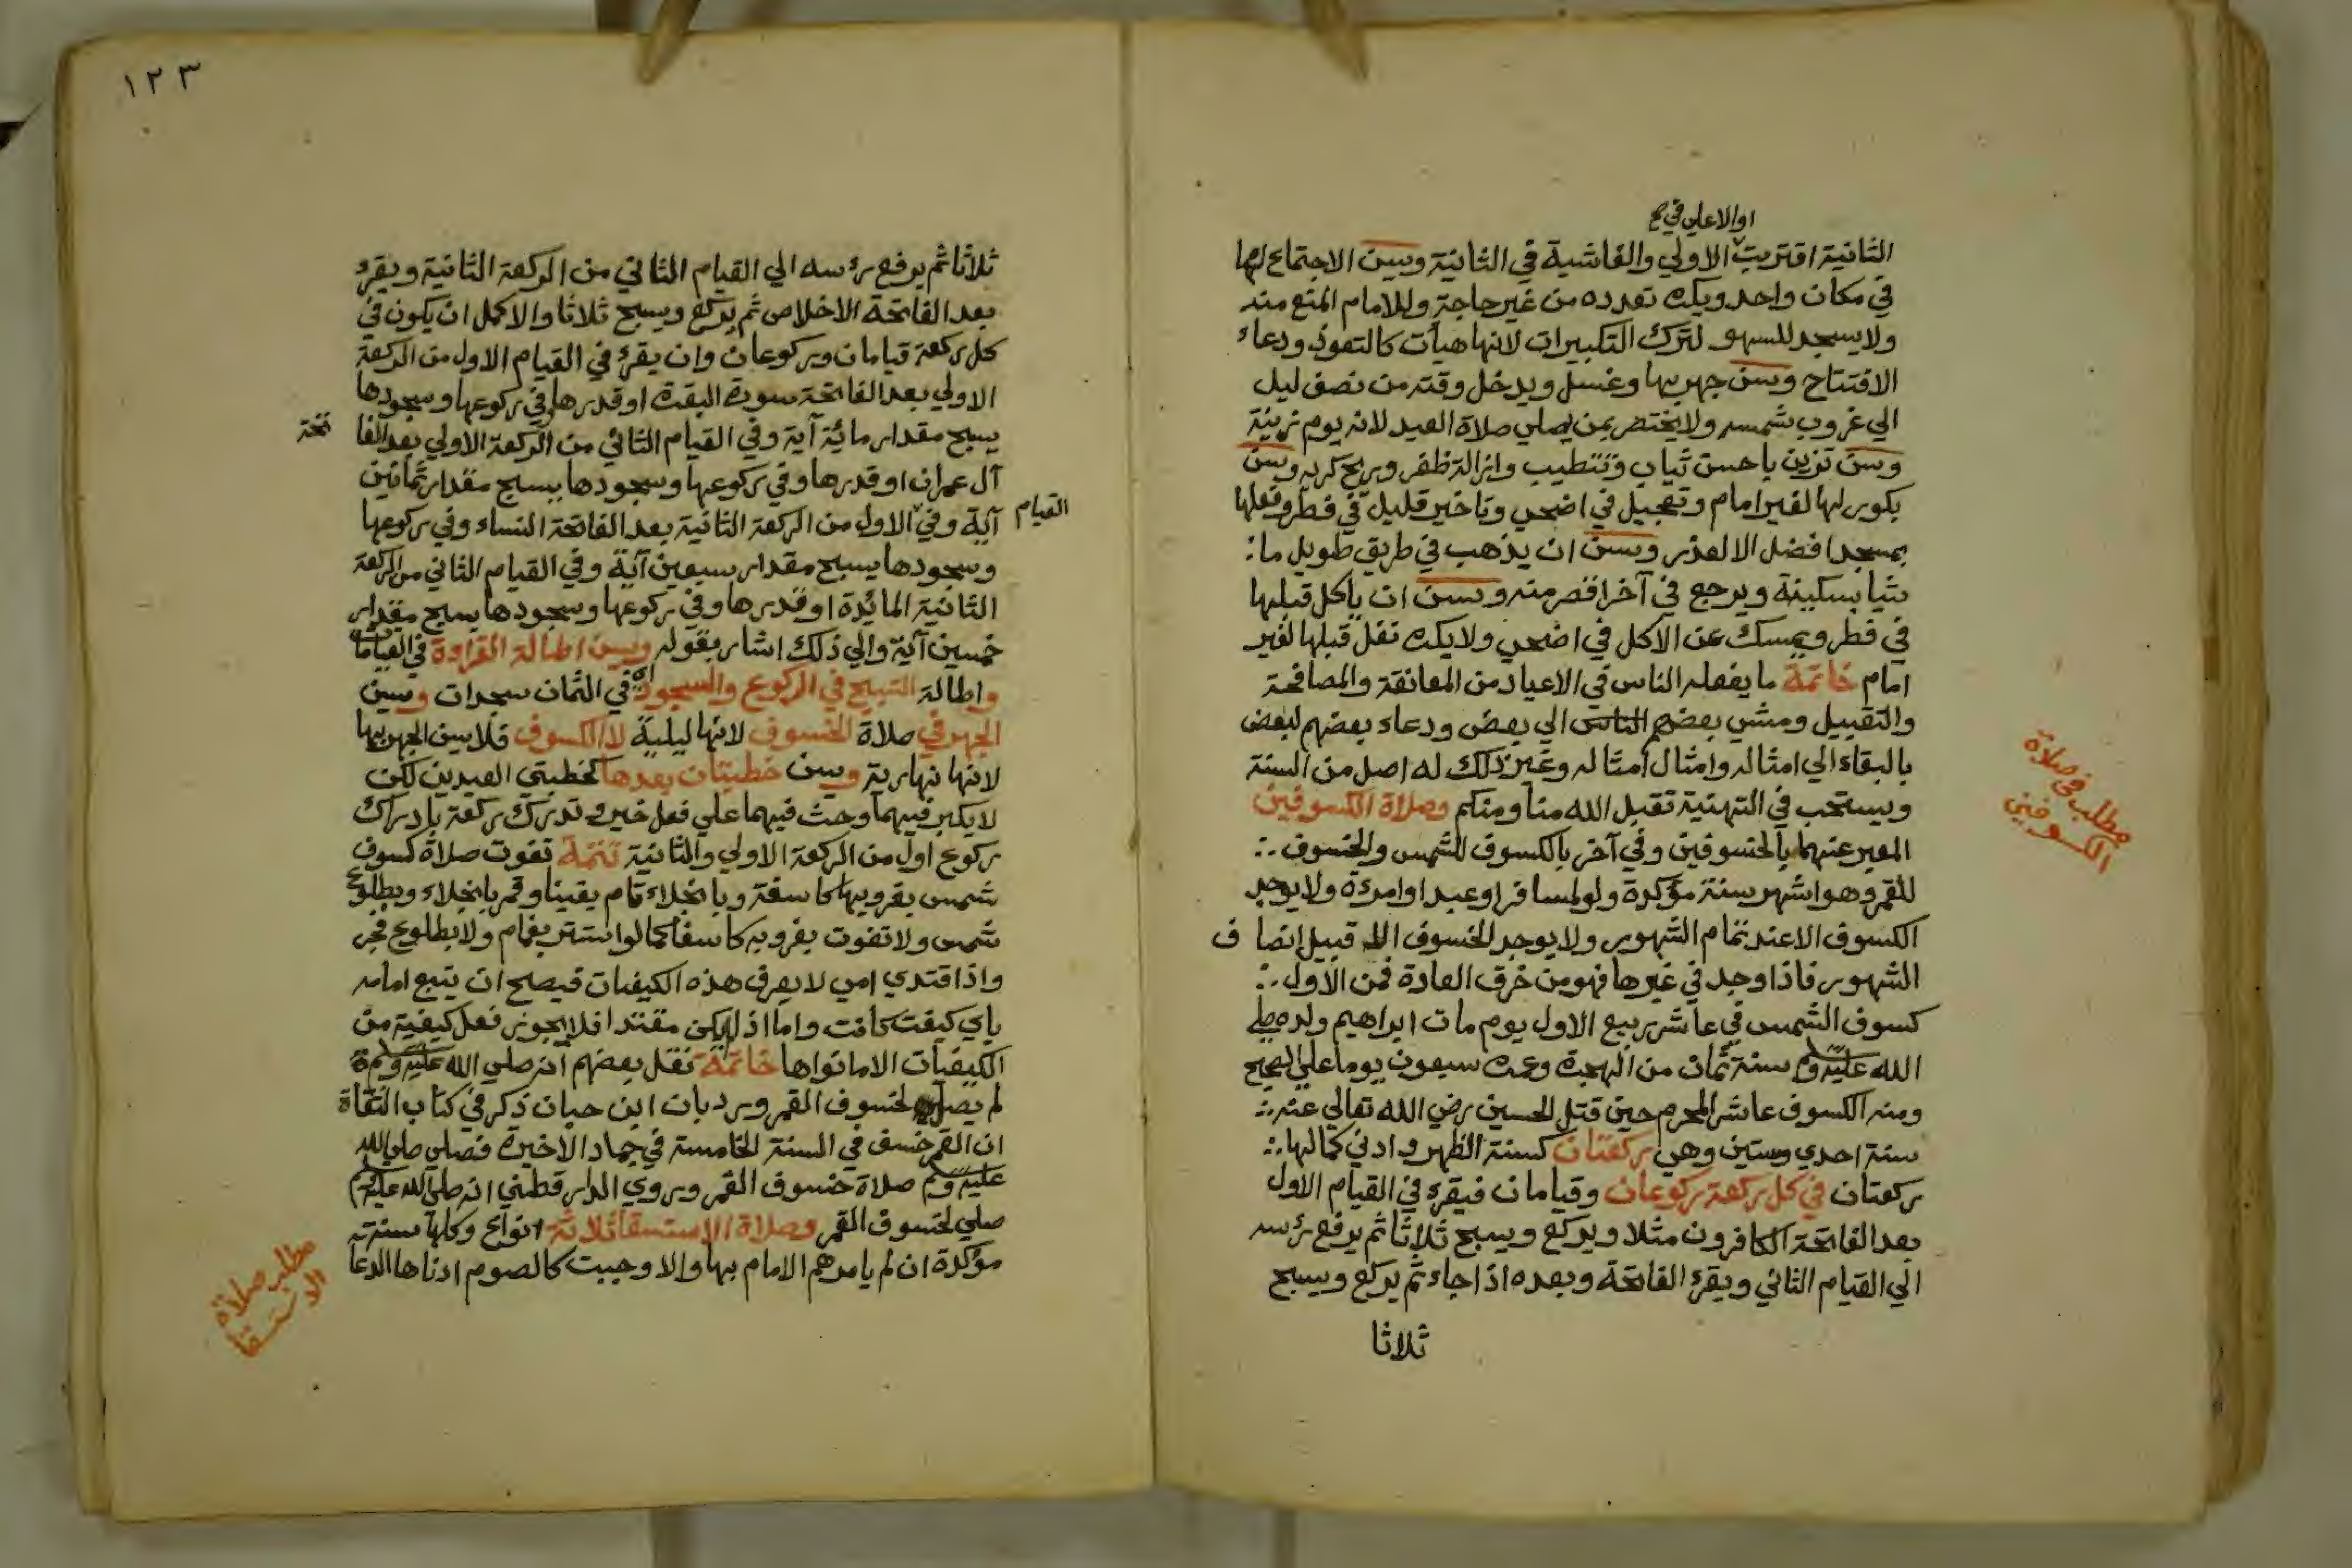 او الاعلي في صح
الثانية اقتربت الاولي والغاشية في الثانية وسن الاجتماع لها
في مكان واحد ويكره تعدده من غير حاجة وللامام المنع منه
ولا يسجد للسهو لترك التكبيرات لانها هيأت كالتعوذ ودعاء
الافتتاح وسن جهر بها وغسل ويدخل وقته من نصف ليل
الي غروب شمسه ولا يختص بمن يصلي صلاة العيد لانه يوم زينة
وسن تزين باحسن ثياب وتطيب وازالة ظفر وريح كريه وسن
بكور لها لغير امام وتعجيل في اضحي وتاخير قليل في فطر وفعلها
بمسجد افضل الا لعذر ويسن ان يذهب في طريق طويل ما
شيا بسكينة ويرجع في آخر اقصر منه وسن ان ياكل قبلها
في فطر ويمسك عن الاكل في اضحي ولا يكره نفل قبلها لغير
امام خاتمة ما يفعله الناس في الاعياد من المعانقة والمصافحة
والتقبيل ومشي بعضهم الناس الي بعض ودعاء بعضهم لبعض
بالبقاء الي امثاله وامثال امثاله وغير ذلك له اصل من السنة
ويستحب في التهنية تقبل الله منا ومنكم وصلاة الكسوفين
المعبر عنهما بالخسوفين وفي آخر بالكسوف للشمس والخسوف
للقمر وهو اشهر سنة مؤكدة ولو لمسافر او عبد او امرءة ولا يوجد
الكسوف الا عند تمام الشهور ولا يوجد الخسوف الا قبيل انصا ف
الشهور فاذا وجد في غيرها فهو من خرق العادة فمن الاول
كسوف الشمس في عاشر ربيع الاول يوم مات ابراهيم ولده صلي
الله عليه وسلم سنة ثمان من الهجرة وعمره سبعون يوما علي الصحيح
ومنه الكسوف عاشر المحرم حين قتل الحسين رضي الله تعالي عنه
سنة احدي وستين وهي ركعتان كسنة الظهر وادني كمالها
ركعتان في كل ركعة ركوعان وقيامان فيقرء في القيام الاول
بعد الفاتحة الكافرون مثلا ويركع ويسبح ثلاثا ثم يرفع رءسه
الي القيام الثاني ويقرء الفاتحة وبعده اذا جاء ثم يركع ويسبح
ثلاثا
مطلب في صلاة
الكسوفين
١٢٣
ثلاثا ثم يرفع رءسه الي القيام الثاني من الركعة الثانية ويقرء
بعد الفاتحة الاخلاص ثم يركع ويسبح ثلاثا والاكمل ان يكون في
كل ركعة قيامان وركوعان وان يقرء في القيام الاول من الركعة
الاولي بعد الفاتحة سورة البقرة او قدرها وفي ركوعها وسجودها
يسبح مقدار مائة آية وفي القيام الثاني من الركعة الاولي بعد الفا تحة
آل عمران او قدرها وفي ركوعها وسجودها يسبح مقدار ثمانين
آية وفي القيام الاول من الركعة الثانية بعد الفاتحة النساء وفي ركوعها
وسجودها يسبح مقدار سبعين آية وفي القيام الثاني من الركعة
الثانية المائدة او قدرها وفي ركوعها وسجودها يسبح مقدار
خمسين آية والي ذلك اشار بقوله ويسن اطالة القراءة في القيامات
واطالة التسبيح في الركوع والسجود اي في الثمان سجدات وسن
الجهر في صلاة الخسوف لانها ليلية لا الكسوف فلا يسن الجهر بها
لانها نهارية وسن خطبتان بعدها كخطبتي العيدين لكن
لا يكبر فيهما وحث فيهما علي فعل خير وتدرك ركعة بادراك
ركوع اول من الركعة الاولي والثانية تتمة تفوت صلاة كسوف
شمس بغروبها كاسفة وبانجلاء تام يقينا وقمر بانجلاء وبطلوع
شمس ولا تفوت بغروبه كاسفا كما لو استتر بغمام ولا بطلوع فجر
واذا اقتدي امي لا يعرف هذه الكيفيات فيصح ان يتبع امامه
باي كيفت كانت واما اذا لم يكن مقتدا فلا يجوز فعل كيفية من
الكيفيات الا ما نواها خاتمة نقل بعضهم انه صلي الله عليه وسلم
لم يصل لخسوف القمر ورد بان ابن حبان ذكر في كتاب الثقاة
ان القمر خسف في السنة الخامسة في جماد الاخيرة فصلي صلي الله
عليه وسلم صلاة خسوف القمر وروي الدارقطني انه صلي الله عليه وسلم
صلي لخسوف القمر وصلاة الاستسقا ثلاثة انواع وكلها سنة
مؤكدة ان لم يامرهم الامام بها والا وجبت كالصوم ادناها الدعا
مطلب صلاة
الاستسقا